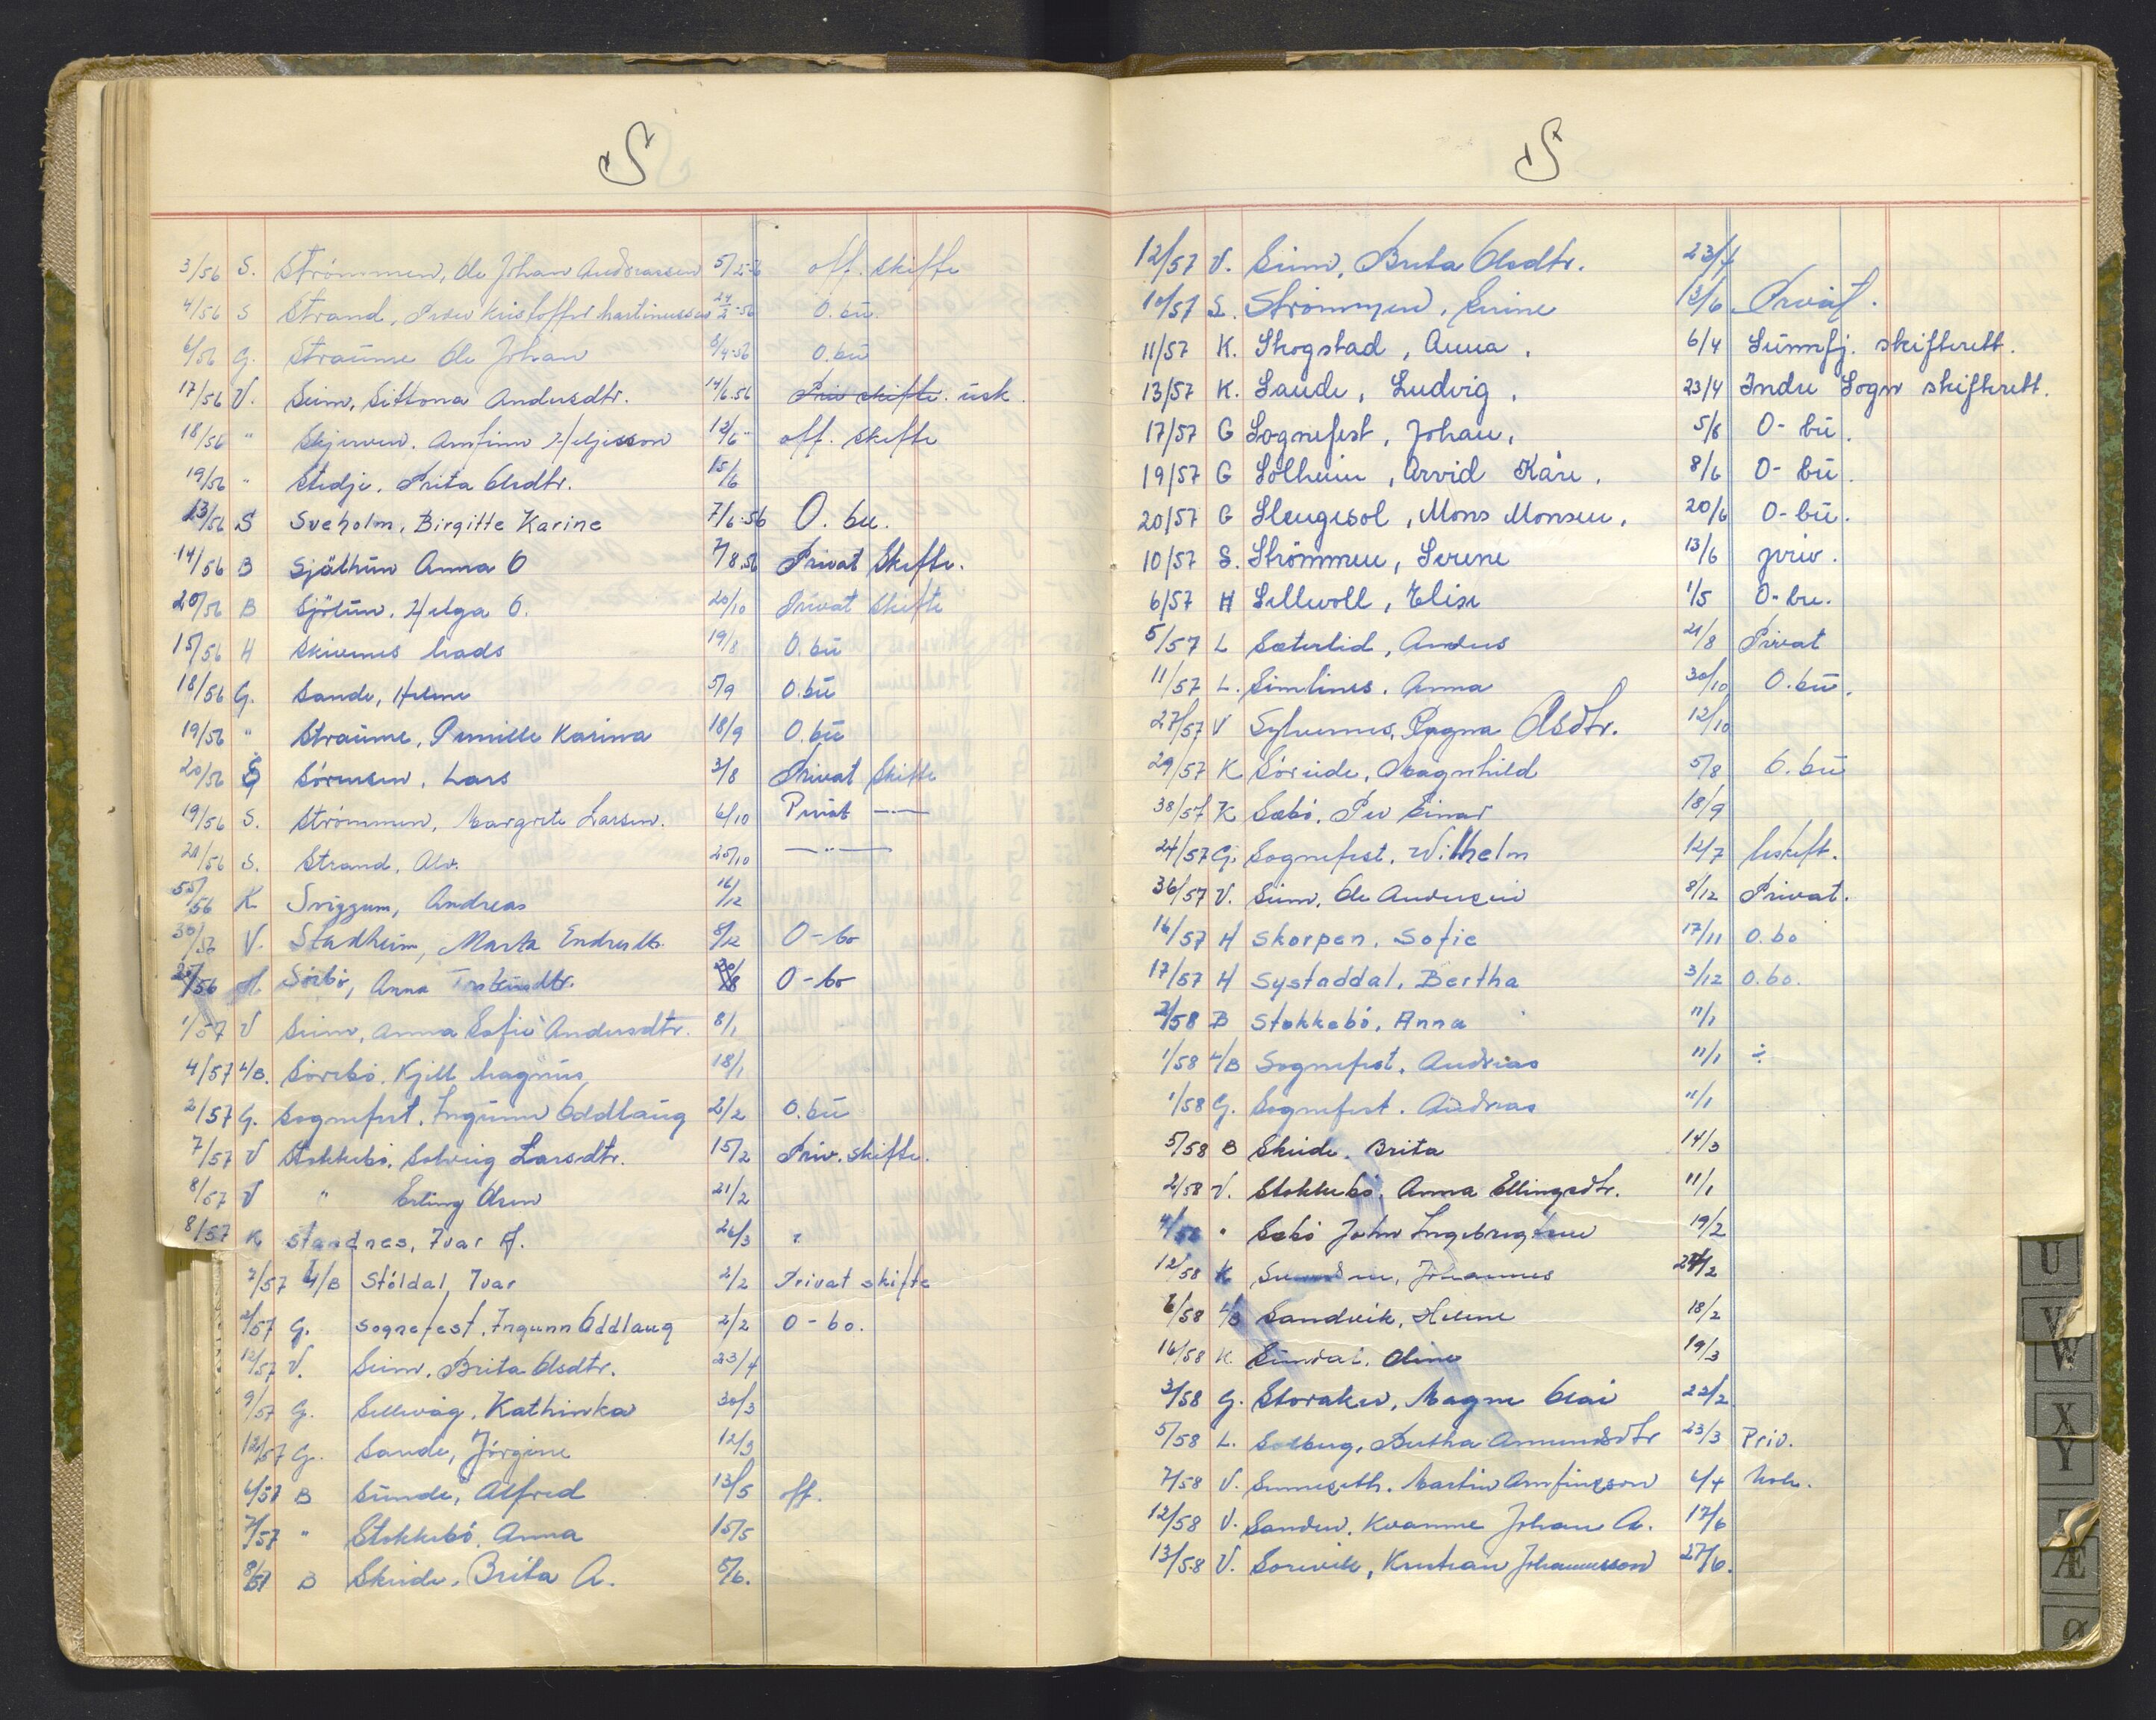 S
3/56 S. Strömmen, Ole Johan Andreassen 5/2-56 off. skifte
4/56 S Strand, Peder Kristoffer Martinussen 24/2-56 O.bú.
6/56 G. Straume Ole Johan 6/4-56 O.bú
17/56 V. Seim, Sittona Andersdtr. 14/6.56 Priv skifte. usk.
18/56 " Skjerven. Arnfinn Heljesson 12/6 " off. skifte
19/56 " Stedje. Brita Olsdtr. 15/6
13/56 S Sveholm, Birgitte Karine 7/6-56 O. bu.
14/56 B Sjåthún Anna O 7/8.56 Privat skifte.
20/56 B Sjötún. Helga O. 20/10 Privat skifte
15/56 H Skivenes Mads 19/8 O.bú
18/56 G. Sande, Helene 5/9 O.bú
19/56 " Straúme, Pernille Karina 18/9 O.bú
20/56 G Sörensen, Lars 3/8 Privat skifte
19/56 S. Strömmen, Margrete Larsen. 6/10 Privat —"—
21/56 S. Strand, Alv. 25/10 —"—
55/56 K Svizzum, Andreas 16/12
30/56 V. Stadheim, Marta Endresdtr. 8/12 O-bo
25/56 Sörbö, Anna 20/8 O-bo
1/57 V Seim, Anna Sofie Andersdtr. 8/1
4/57 Y/B. Sörebö. Kjell Magnus 18/1
2/57 G. Sognefest. Ingunn Oddlaúg 2/2 O.bú
7/57 V Stokkebö. Solveig Larsdtr. 15/2 Priv. skifte.
8/57 V " Erling Olsen 21/2
8/57 K Standnes, Ivar A. 26/3 "
7/57 Y/B Stöldal, Ivar 2/2 Privat skifte
2/57 G. Sognefest. Ingunn Oddlaug 2/2 O-bo.
12/57 V. Seim. Brita Olsdtr. 23/4
9/57 G. Sellevåg, Kathinka 30/3
12/57 G. Sande, Jörgine 12/3
6/57 B Súnde, Alfred 13/5 off.
7/57 " Stokkebö. Anna 15/5
8/57 B Skeide. Brita A. 5/6.
S
12/57 V. Seim, Brita Olsdtr. 23/4
10/57 S. Strömmen, Serine 13/6 Privat.
11/57 K. Skogstad, Anna. 6/4 Súnnfj. skifterett.
13/57 K. Sande, Ludvig. 23/4 Indre Sogn skifterett.
17/57 G Sognefest, Johan. 5/6 O-bú.
19/57 G Solheim, Arvid Kåre. 8/6 O-bú.
20/57 G Slengesol, Mons Monsen. 20/6 O-bú.
10/57 S. Strömmen, Serene 13/6 priv.
6/57 H Sellevoll, Elise 1/5 O-bu.
5/57 L Sæterlid, Anders 21/8 Privat
11/57 L. Simlines. Anna 30/10 O.bú.
27/57 V Sylvernes, Ragna Olsdtr. 12/10
29/57 K Söreide, Magnhild 5/8 O.bú
38/57 K Sæbö. Per Einar 18/9
24/57 G. Sognefest. Wilhelm 12/7 Uskift.
36/57 V. Seim. Ole Andersen 8/12 Privat.
16/57 H Skorpen. Sofie 17/11 O.bo
17/57 H Systaddal, Bertha 3/12 O.bo.
2/58 B Stokkebö, Anna 11/1
1/58 Y/B Sognefest. Andreas 11/1 ÷
1/58 G. Sognefest. Andreas 11/1
5/58 B Skeide. Brita 14/3
2/58 V. Stokkebö. Anna Ellingsdtr. 11/1
4/58 " Sæbö John Ingebrigtsen 19/2
12/58 K Johannes 24/2
6/58 Y/B Sandvik, Helene 18/2
16/58 K. Súndal. Oline 19/3
3/58 G. Storaker, Magne Olai 22/2
5/58 L. Solberg. Bertha Amundsdtr 23/3 Priv.
7/58 V. Sunneseth. Martin Arnfinsson 6/4 Usk.
12/58 V. Sanden. Kvamme Johan A. 17/6
13/58 V. Sorevik, Kristian Johannesson 27/6.
U
V
W
X
Y
Æ
Ø